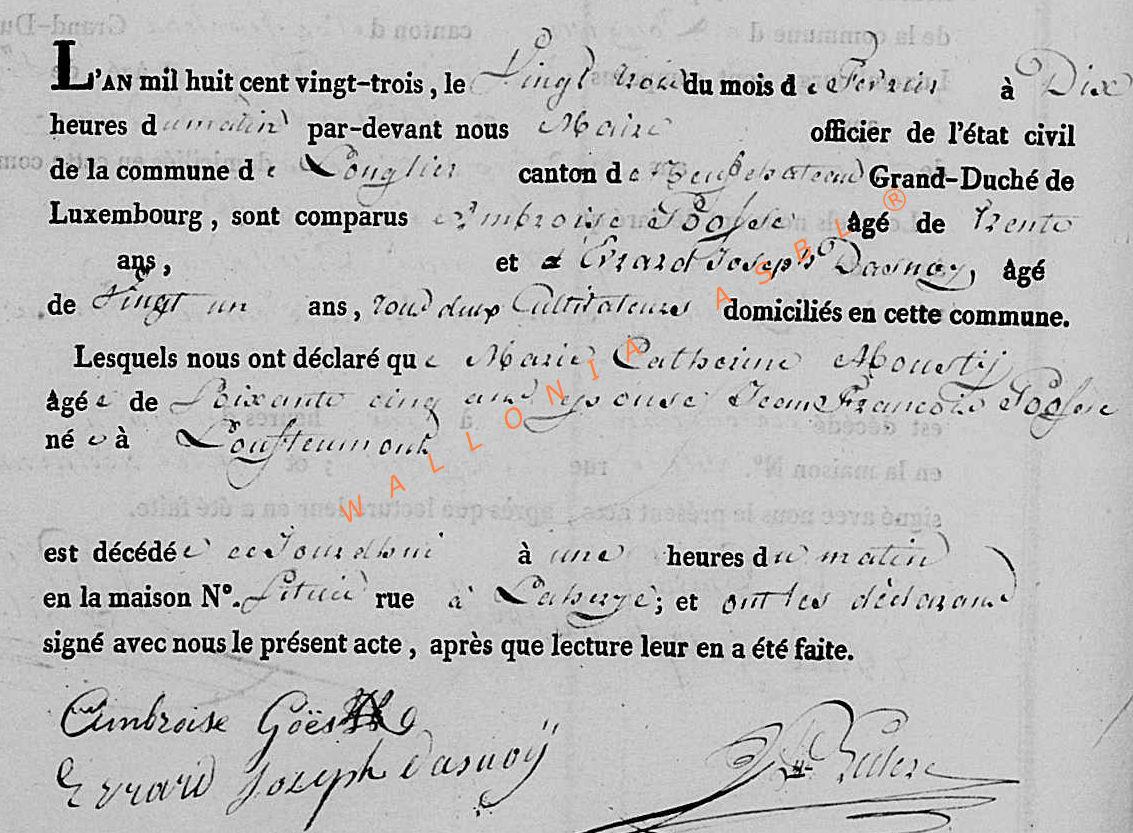 L'AN mil huit cent vingt-trois, le Vingt trois du mois de Fevrier à Dix
heures du matin par-devant nous Maire officier de l'état civil
de la commune de Longlier canton de Neufchateau Grand-Duché de
Luxembourg, sont comparus Ambroise âgé de trente
ans, et Erard Joseph Dasnoy, âgé
de vingt un ans, tous deux Cultivateurs domiciliés en cette commune.
Lesquels nous ont déclaré que Marie Catherine Mousty
âgée de Soixante cinq ans Epouse Jean François
née à
est décédée cejourdhui à une heures du matin
en la maison N°. située rue à Laherye; et ont les déclarans
signé avec nous le présent acte, après que lecture leur en a été faite.
Ambroise
Errard Joseph dasnoÿ
WALLONIA ASBL ®